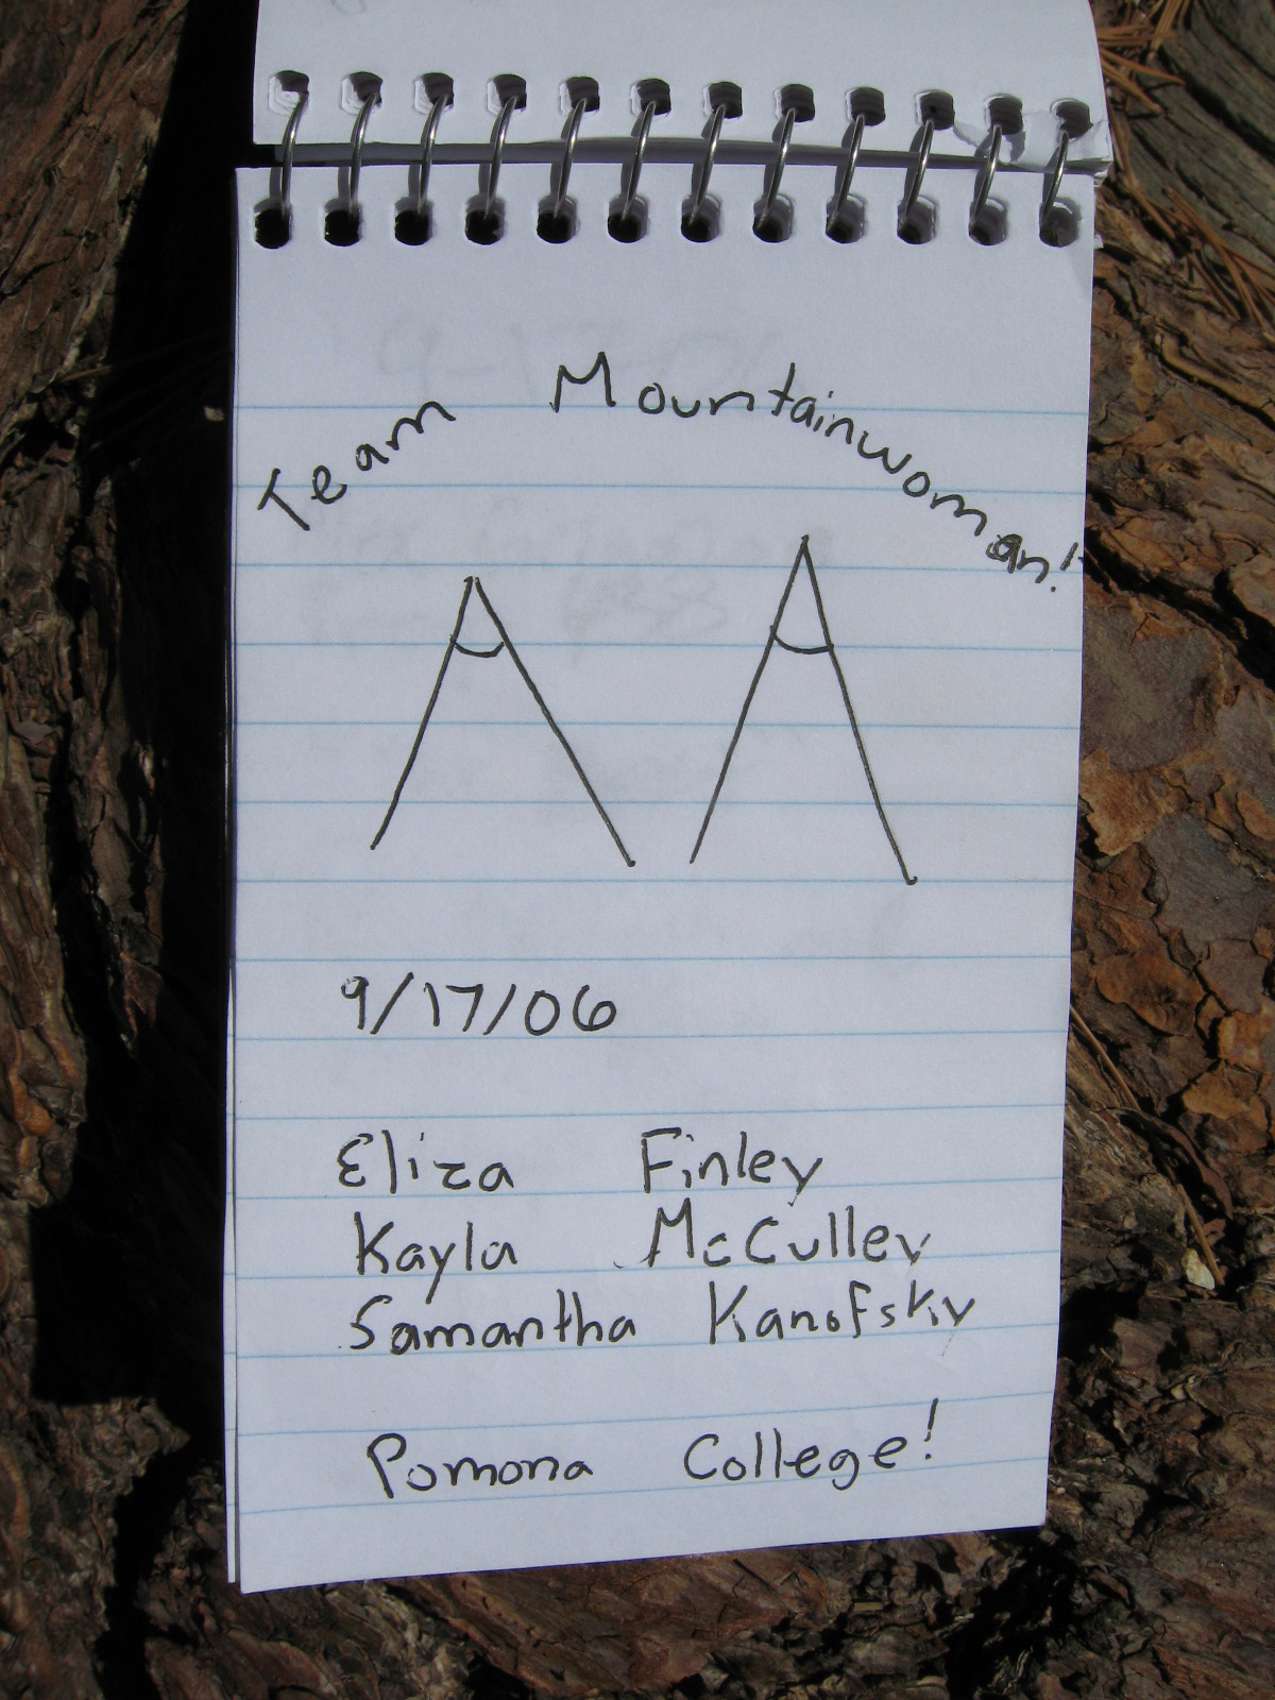 Team Mountainwoman!
9/17/06
Eliza Finley
Kayla McCulley
Samantha Kanofsky
Pomona College!